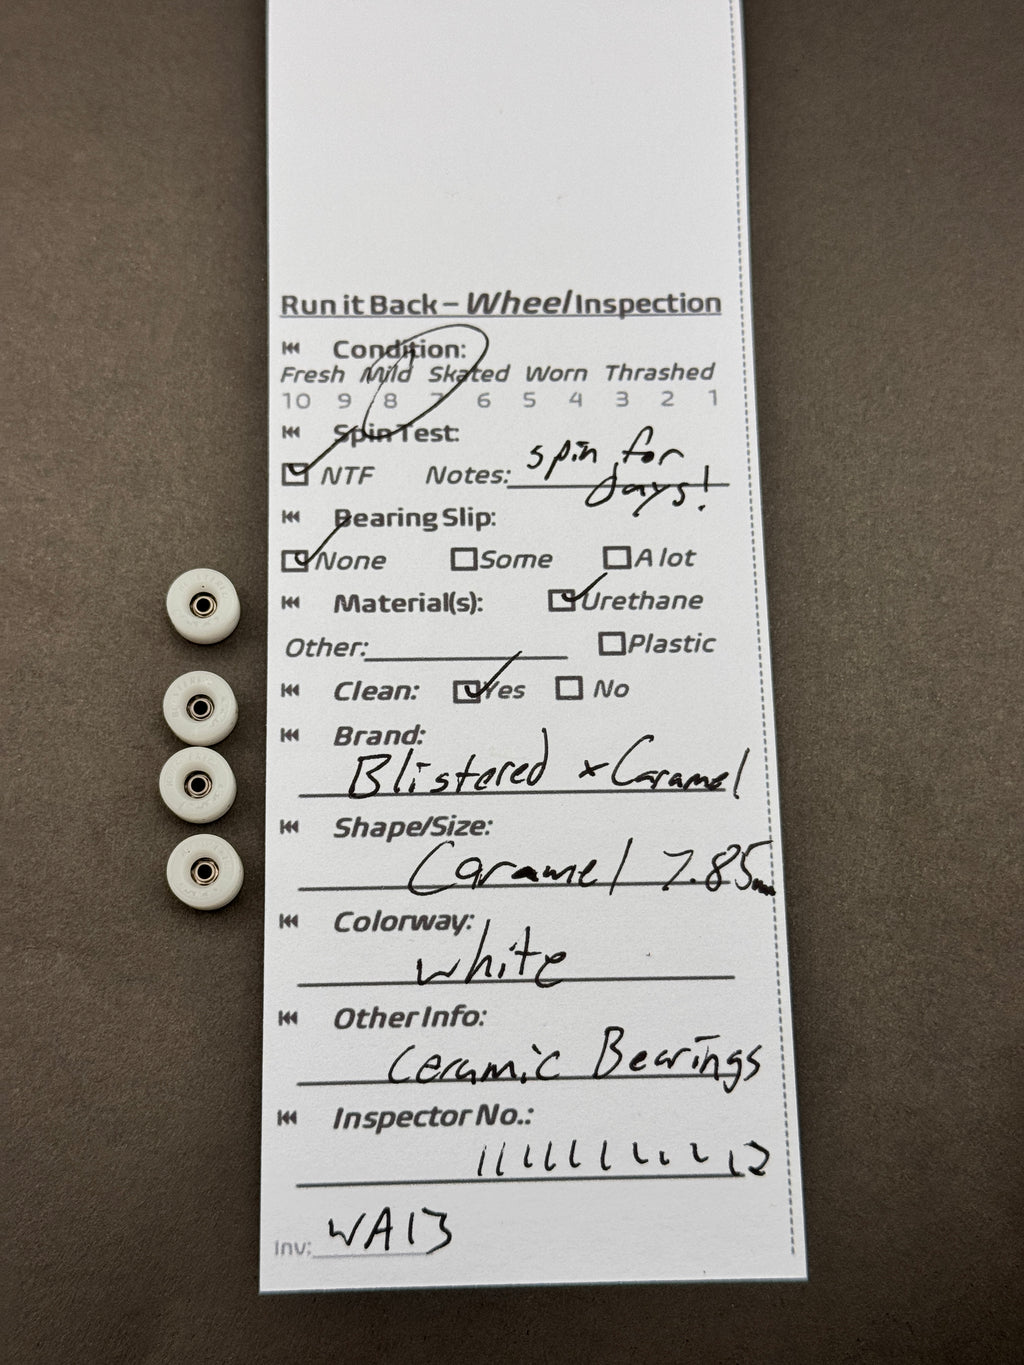 Run it Back – Wheel Inspection
Condition:
Fresh Mild Skated Worn Thrashed
10 9 8 7 6 5 4 3 2 1
Spin Test:
NTF Notes: spin for days!
Bearing Slip:
None Some A lot
Material(s): Urethane
Other: Plastic
Clean: Yes No
Brand:
Blistered x Caramel
Shape/Size:
Caramel 7.85mm
Colorway:
white
Other Info:
Ceramic Bearings
Inspector No.:
Inv: WA13